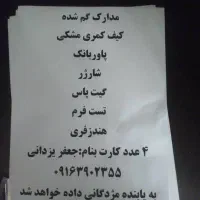 مدارک گم شده
کیف کمری مشکی
پاوربانک
شارژر
گیت پاس
تست فرم
هندزفری
۴ عدد کارت بنام:جعفر یزدانی
۰۹۱۶۳۹۰۲۳۵۵
به یابنده مژدگانی داده خواهد شد